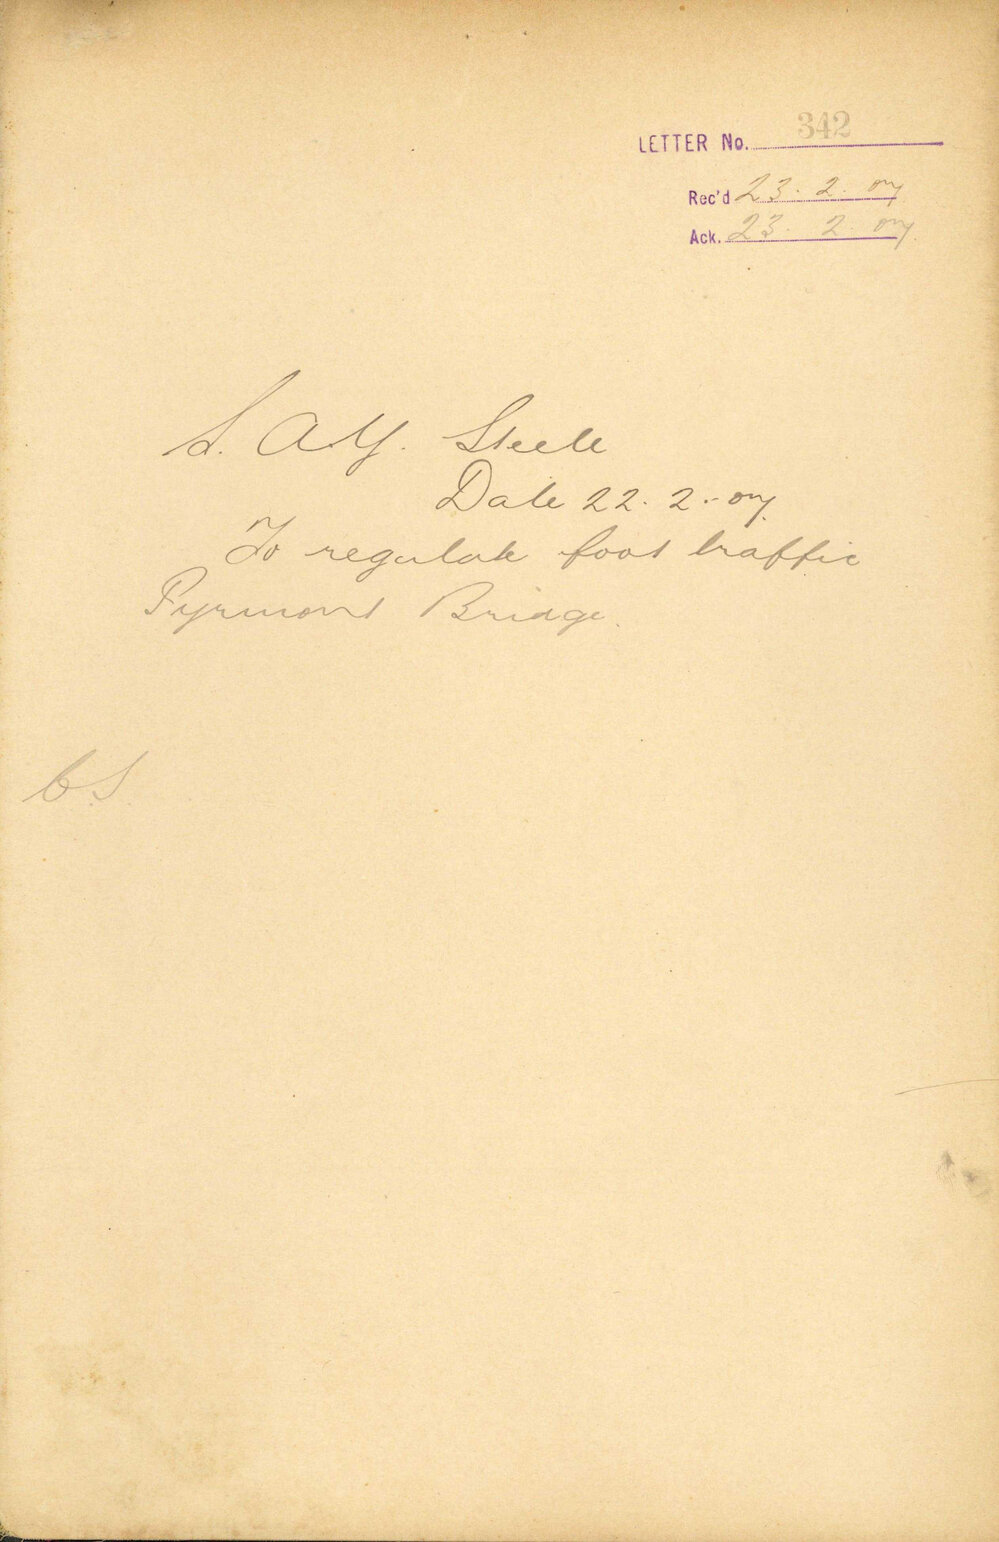 LETTER No. 342
Rec'd 23. 2. 07
Ack. 23. 2. 07.
Steele
Date 22. 2. - 07.
To regulate foot traffic
Pyrmont Bridge.